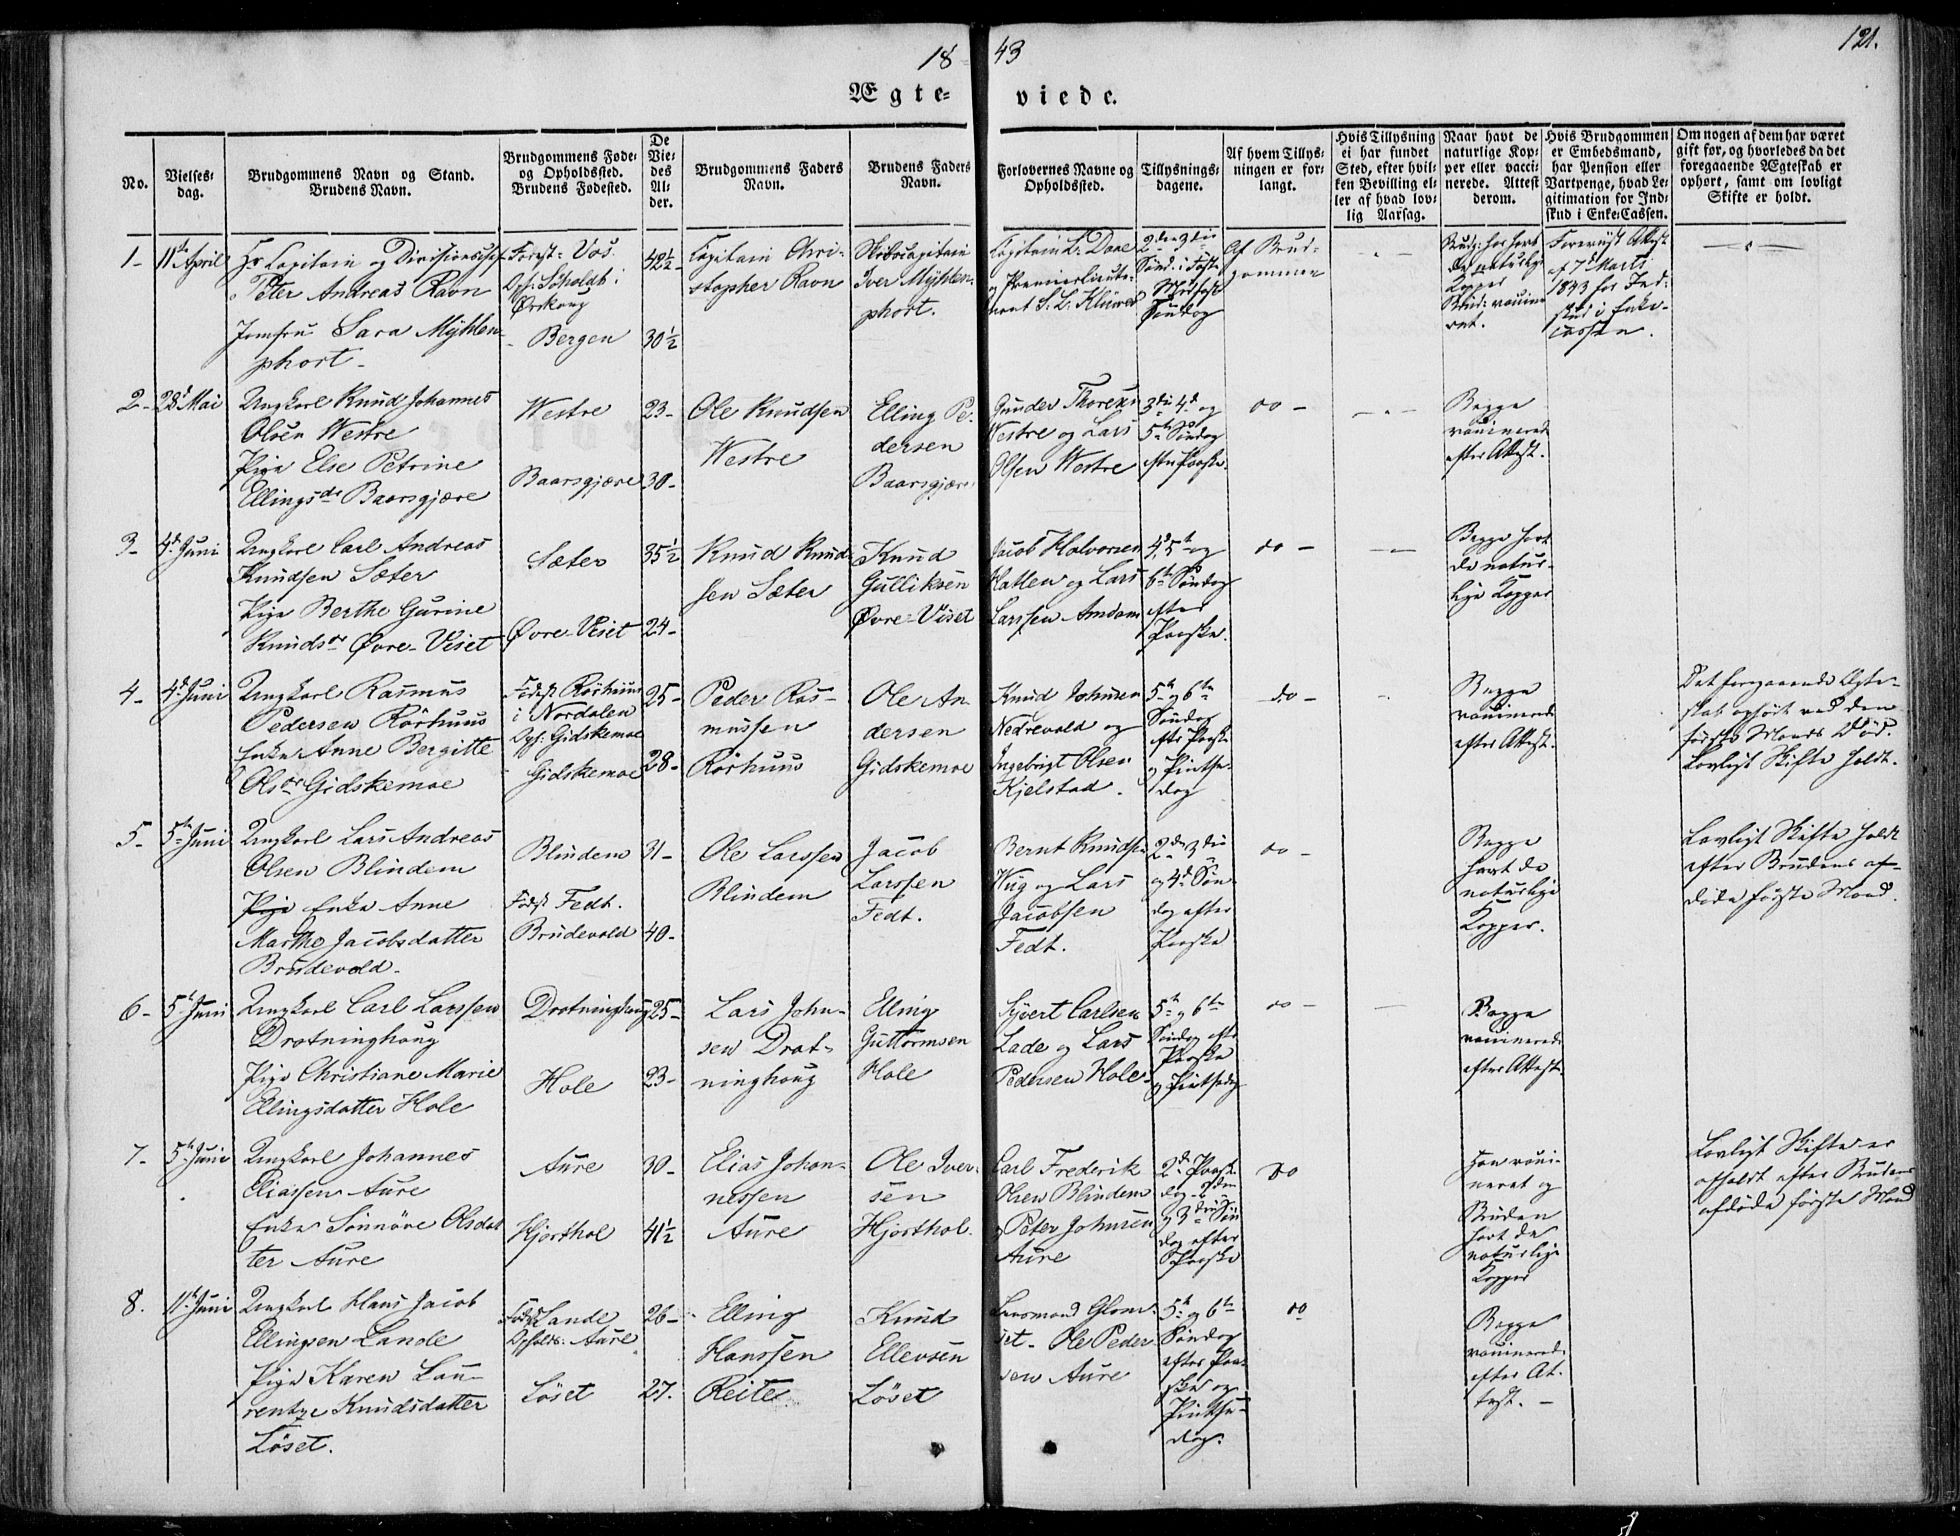 18 43
121.
Ægte- viede.
No.
Vielses-
dag.
Brudgommens Navn og Stand.
Brudens Navn.
Brudgommens Føde-
og Opholdssted.
Brudens Fødested.
De
Vie-
des
Al-
der.
Brudgommens Faders
Navn.
Brudens Faders
Navn.
Forlovernes Navne og
Opholdssted.
Tillysnings-
dagene.
Af hvem Tillys-
ningen er for-
langt.
Hvis Tillysning
ei har fundet
Sted, efter hvil-
ken Bevilling el-
ler af hvad lov-
lig Aarsag.
Naar havt de
naturlige Kop-
per eller vacci-
nerede. Attest
derom.
Hvis Brudgommen
er Embedsmand,
har Pension eller
Vartpenge, hvad Le-
gitimation for Ind-
skud i Enke-Cassen.
Om nogen af dem har været
gift før, og hvorledes da det
foregaaende Ægteskab er
ophørt, samt om lovligt
Skifte er holdt.
1-
11te April
Hr Capitain og Divisionschef
Peter Andreas Ravn
Jomfru Sara Myhlen-
phort-
Fødest: Vos.
Opf: Søholdt i
Ørskoug
Bergen
42½-
30½
Capitain Chri-
stopher Ravn
Iver Myhlen-
phort.
Capitain L. Daae
og Premierlieute-
nant S. L. Klüwer
2den 3die
Sønd. i Faste
Søndag
Af Brud-
gommen
Brudg: har havt
de naturlige
Kopper
Brud: vaccine-
ret.
Foreviist Attest
af 7de Marts
1843 for Ind-
skud i Enke-
cassen.
2-
28de Mai
Ungkarl Knud Johannes
Olsen Westre
Pige Else Petrine
Ellingsdr Baarsgjære
Westre
Baarsgjære
23-
30-
Ole Knudsen
Westre
Elling Pe-
dersen
Baarsgjære
Gunder Thoresen
Westre og Lars
Olsen Westre
3die 4de og
5te Søndag
efter Paaske.
do -
Begge
vaccinerede
efter Attest.
3-
4de Juni
Ungkarl Carl Andreas
Knudsen Sæter
Pige Berthe Gurine
Knudsdr Øvre-Viset
Sæter
Øvre-Viset
35½
24-
Knud Knud-
sen Sæter
Knud
Gulliksen
Øvre-Viset
Jacob Halvorsen
Hatlen og Lars
Larssen Amdam
4de 5te og
6te Søndag
efter
Paaske.
do -
Begge havt
de natur-
lige Kopper
4-
4de Juni
Ungkarl Rasmus
Pedersen Rörhuus
Enke Anne Bergitte
Olsdr Gidskemoe
Fødest Rörhuus
i Nordalen
Opf: Gidskemoe
Gidskemoe
25-
28-
Peder Ras-
mussen
Rörhuus
Ole An-
dersen
Gidskemoe
Knud Johnsen
Nedrevold og
Ingebrigt Olsen
Kjelstad.
5te og 6te
Søndag
efter Paaske
og Pintse-
dag
do -
Begge
vaccinerede
efter Attest.
Det foregaaende Ægte-
skab ophørt ved den
første Mands Død.
Lovligt Skifte holdt.
5-
5te Juni
Ungkarl Lars Andreas
Olsen Blindem
Pige Enke Anne
Marthe Jacobsdatter
Brudevold-
Blindem
Fødest Fedt.
Brudevold
31-
40-
Ole Larssen
Blindem
Jacob
Larssen
Fedt.
Bernt Knudsen
Wiig og Lars
Jacobsen
Fedt.
2den 3die
og 4de Søn-
dag efter
Paaske
do -
Begge
havt de
naturlige
Kopper.
Lovligt Skifte holdt
efter Brudens af-
døde første Mand.
6-
5te Juni
Ungkarl Carl Larssen
Drotninghoug
Pige Christiane Marie
Ellingsdatter Hole
Drotninghoug
Hole
25-
23-
Lars John-
sen Drot-
ninghoug
Elling
Guttormsen
Hole
Syvert Carlsen
Lade og Lars
Pedersen Hole
5te og 6te
Søndag efter
Paaske
og Pintsedag
do -
Begge
vaccinerede
efter Attest.
7-
5te Juni
Ungkarl Johannes
Eliassen Aure
Enke Sönnöve Olsdat-
ter Aure
Aure
Hjorthol
30-
41½
Elias Johan-
nessen
Aure
Ole Iver-
sen
Hjorthol.
Carl Frederik
Olsen Blindem
og Peter Johnsen
Aure
2den Paaske-
dag 2den
og 3die Søn-
dag efter
Paaske
do
Han vacci-
neret og
Bruden
havt de
naturlige
Kopper
Lovligt Skifte er
afholdt efter Brudens
afdøde første Mand
8.
11te Juni
Ungkarl Hans Jacob
Ellingsen Lande
Pige Karen Lau-
rentze Knudsdatter
Löset.
Fødest Lande
Opholds: Aure
Löset
26-
27.
Elling
Hanssen
Reite
Knud
Ellevsen
Löset
Ole Peder-
sen Aure
5te og 6te
Søndag
efter Paa-
ske og
Pintse-
dag.
do
Begge
vaccinerede
efter At-
test. -